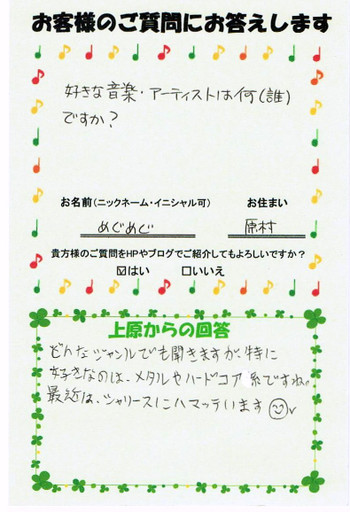 お客様のご質問にお答えします
好きな音楽・アーティストは何(誰)
ですか?
お名前(ニックネーム・イニシャル可) お住まい
めぐめぐ 原村
貴方様のご質問をHPやブログでご紹介してもよろしいですか?
☑はい □いいえ
上原からの回答
どんなジャンルでも聞きますが、特に
好きなのは、メタルやハードコア系ですね。
最近は、シャリースにハマッています